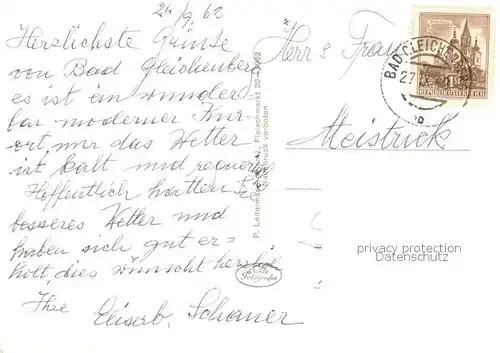 24/9. 62
Herzlichste Grüsse
von Bad Gleichenberg
es ist ein wunder
bar moderner Kur-
ort, nur das Wetter
ist kalt und regnerisch
Hoffentlich hatten Sie
besseres Wetter und
haben sich gut er-
holt, dies wünscht herzlich
Ihre
Schauer
P. Ledermann, Wien I., Fleischmarkt 20 – 1962
Nachdruck verboten
Echte
Fotografie
Herr & Frau
Meistrick
BAD GLEICHENBERG
27
REPUBLIK ÖSTERREICH
privacy protection
Datenschutz